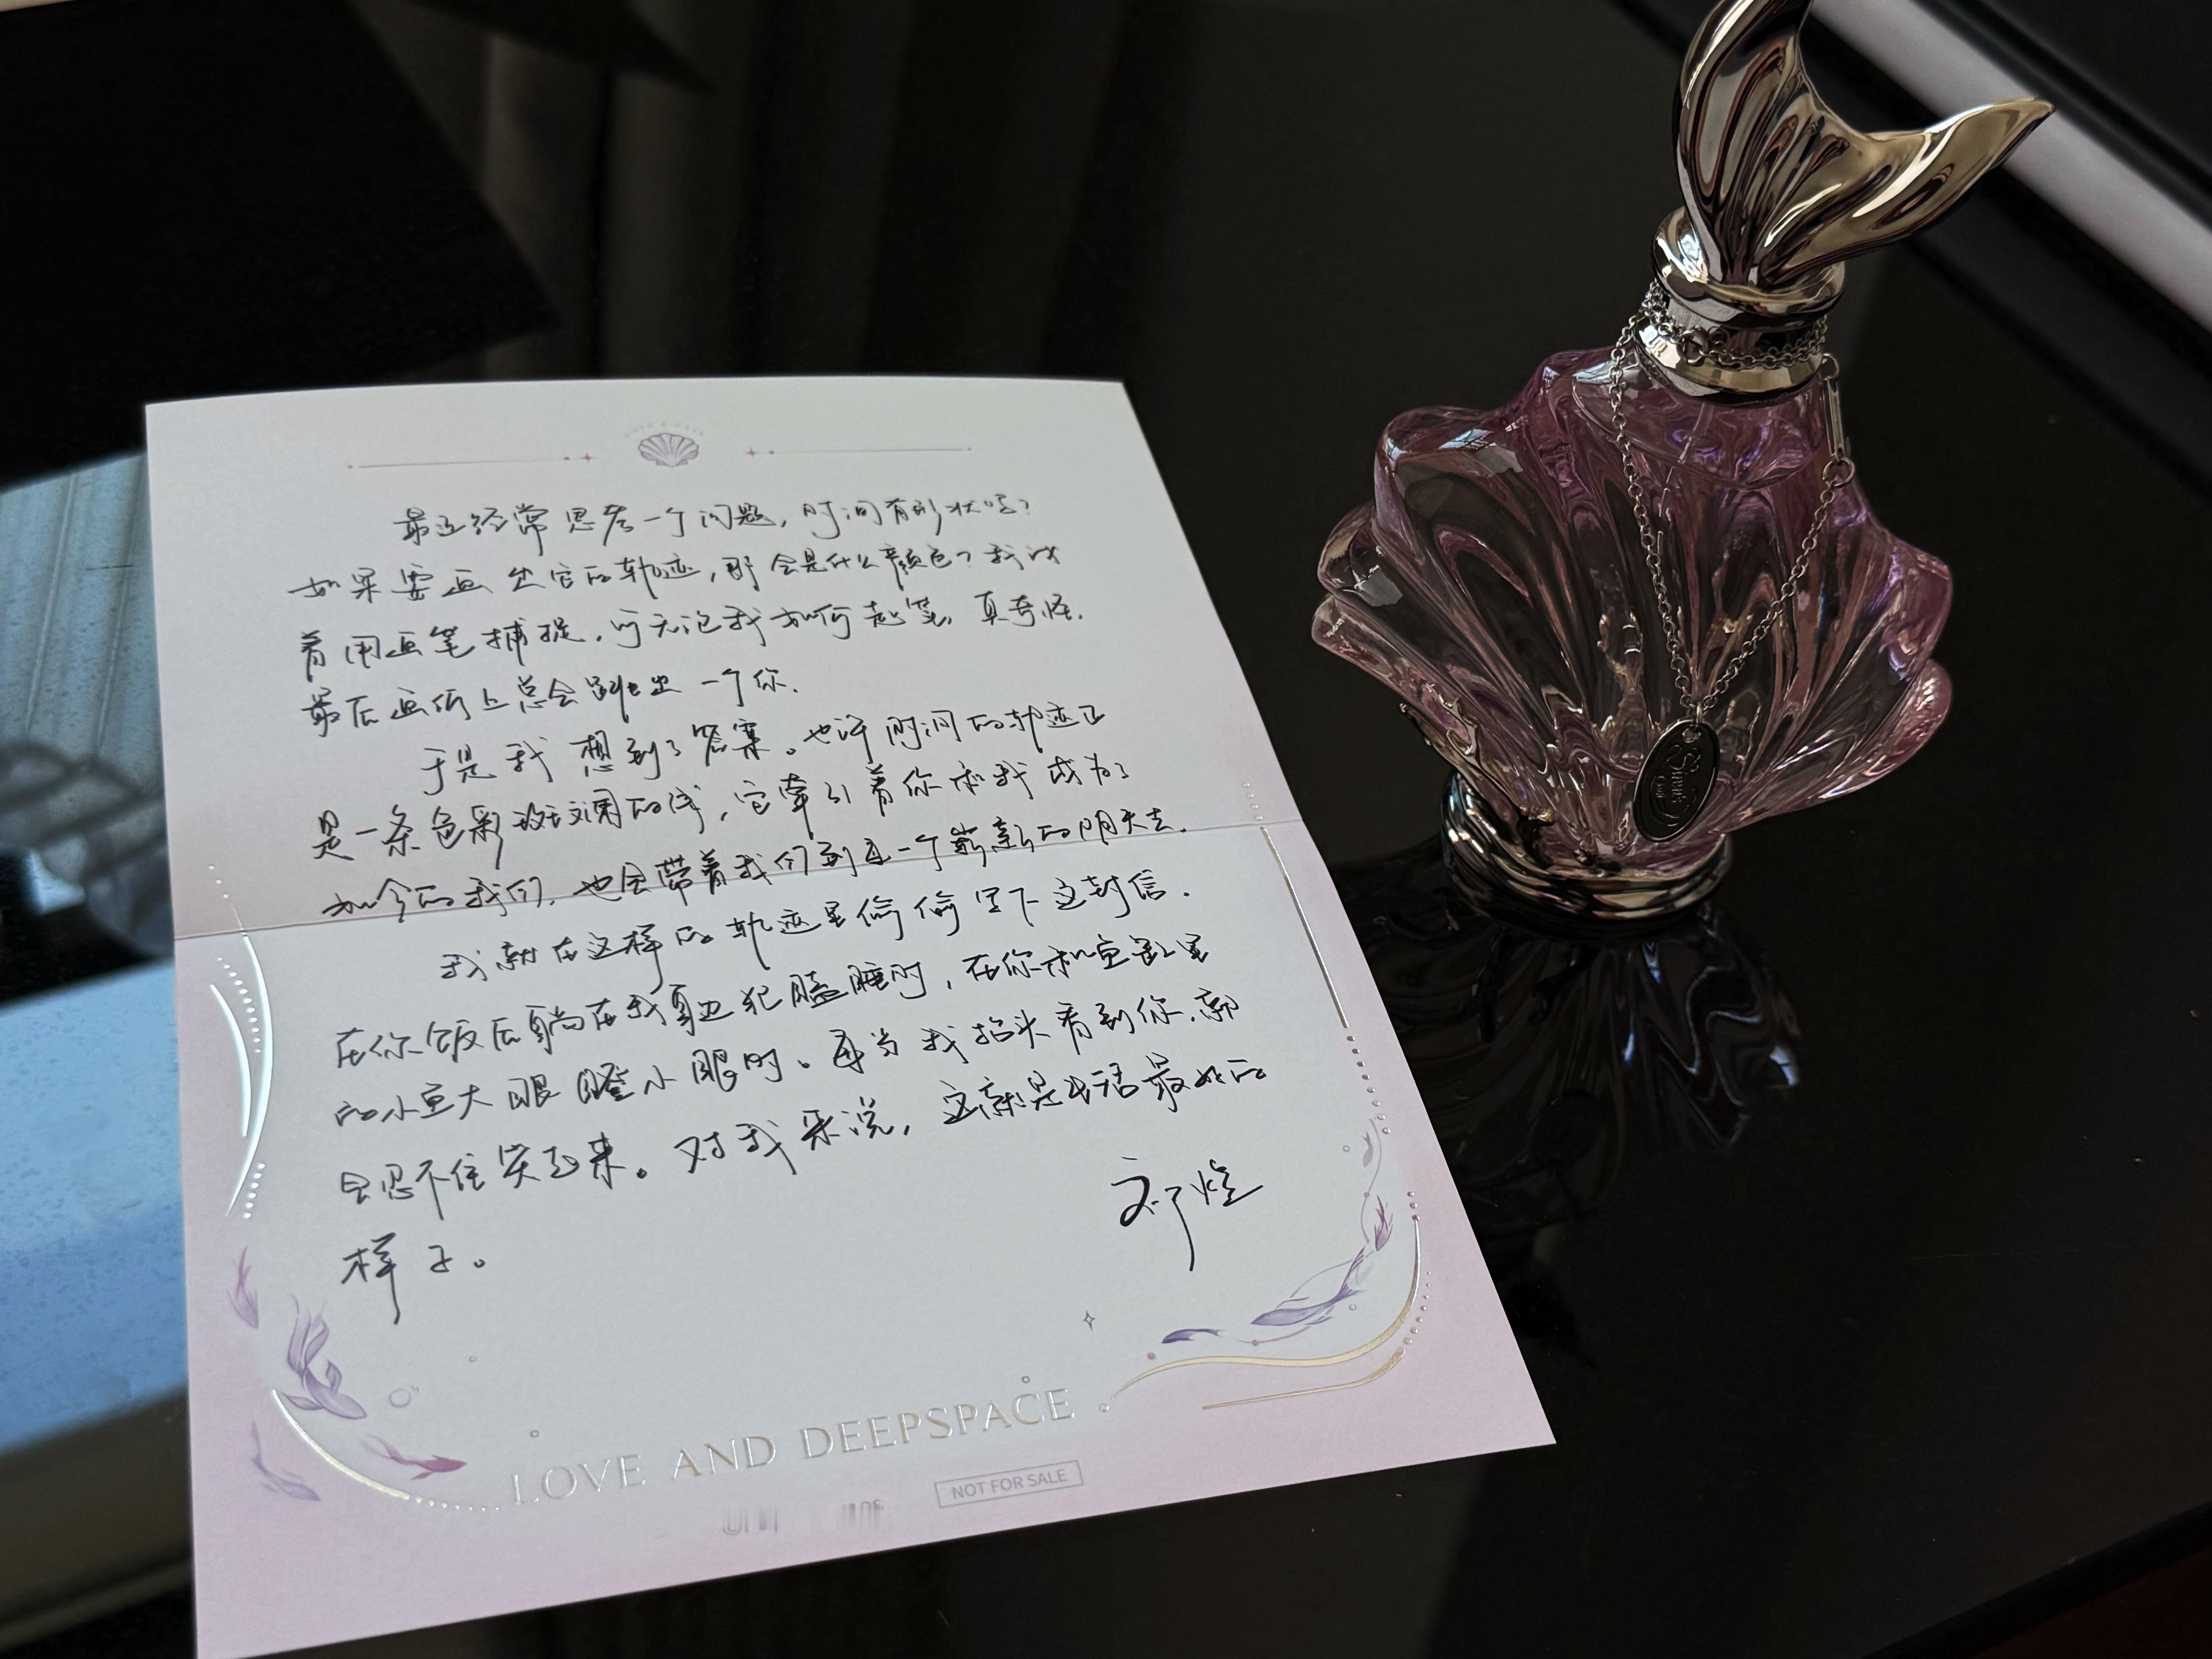 最近经常思考一个问题，时间有形状吗？
如果要画出它的轨迹，那会是什么颜色？我试
着用画笔捕捉，可无论我如何起笔，真奇怪，
最后画纸上总会跳出一个你。
于是我想到了答案。也许时间的轨迹正
是一条色彩斑斓的线，它牵引着你和我成为了
如今的我们，也会带着我们到每一个崭新的明天去。
我就在这样的轨迹里偷偷写下这封信。
在你饭后躺在我身边犯瞌睡时，在你和鱼缸里
的小鱼大眼瞪小眼时。每当我抬头看到你，都
会忍不住笑起来。对我来说，这就是生活最好的
样子。
祁煜
LOVE AND DEEPSPACE
NOT FOR SALE